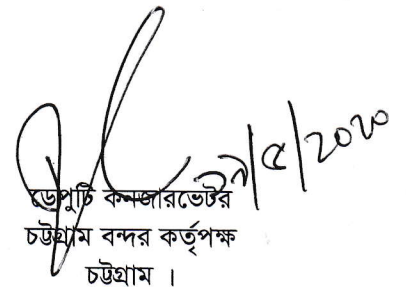 ডেপুটি কনজারভেটর
চট্টগ্রাম বন্দর কর্তৃপক্ষ
চট্টগ্রাম ।